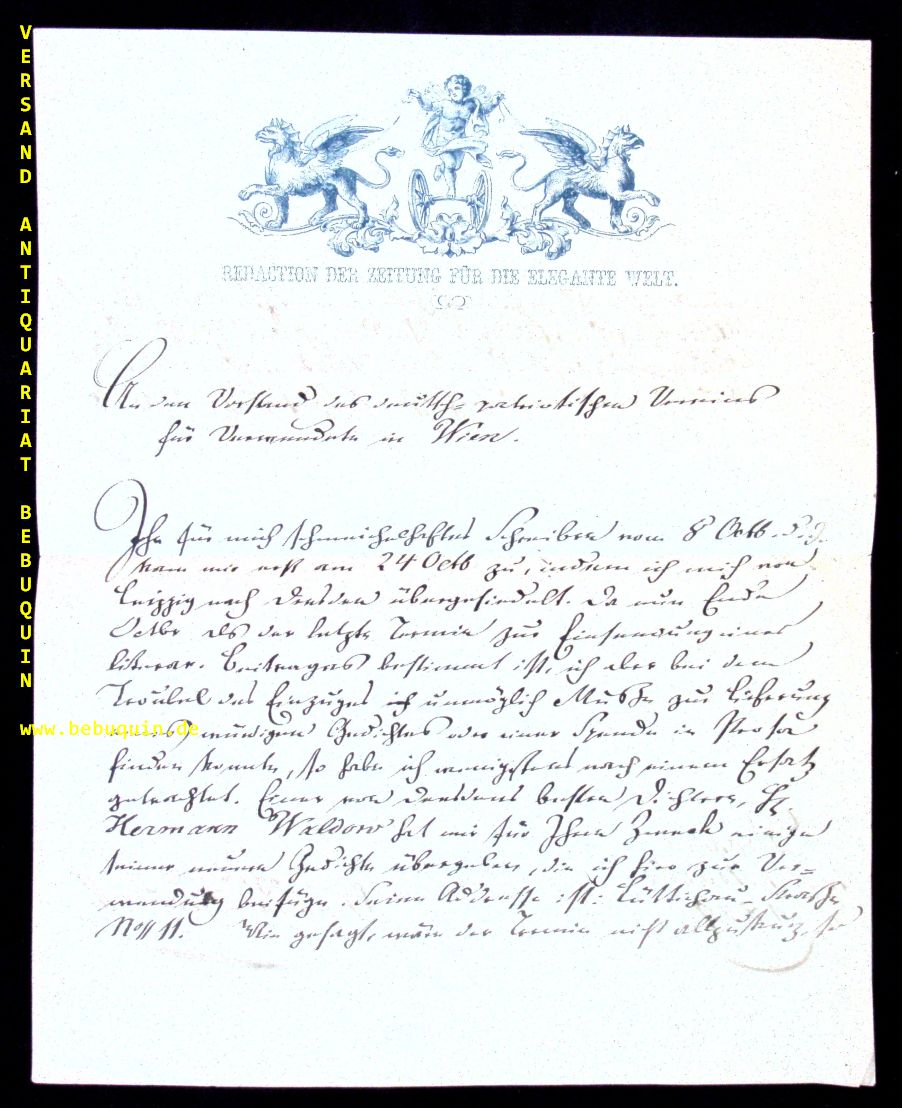 VERSAND ANTIQUARIAT BEBUQUIN
www.bebuquin.de
REDACTION DER ZEITUNG FÜR DIE ELEGANTE WELT.
An den Vorstand des deutsch-patriotischen Vereins
für Verwundete in Wien.
Ihr für mich schmeichelhaftes Schreiben vom 8 Octb. d. J.
kam mir erst am 24 Octb zu, indem ich mich von
Leipzig nach Dresden übergesiedelt. Da nun Ende
Octbr als der letzte Termin zur Einsendung eines
literar. Beitrages bestimmt ist, ich aber bei dem
Troubel des Einzuges ich unmöglich Muße zur Lieferung
eines würdigen Gedichtes oder einer Spende in Prosa
finden konnte, so habe ich wenigstens nach einem Ersatz
getrachtet. Einer von Dresdens besten Dichtern, Hr.
Hermann Waldow hat mir für Ihren Zweck einige
seiner neuen Gedichte übergeben, die ich hier zur Ver=
wendung beifüge. Seine Addresse ist: Lüttichau-Strasse
No 11. Wie gesagt, wäre der Termin nicht allzu kurz, so